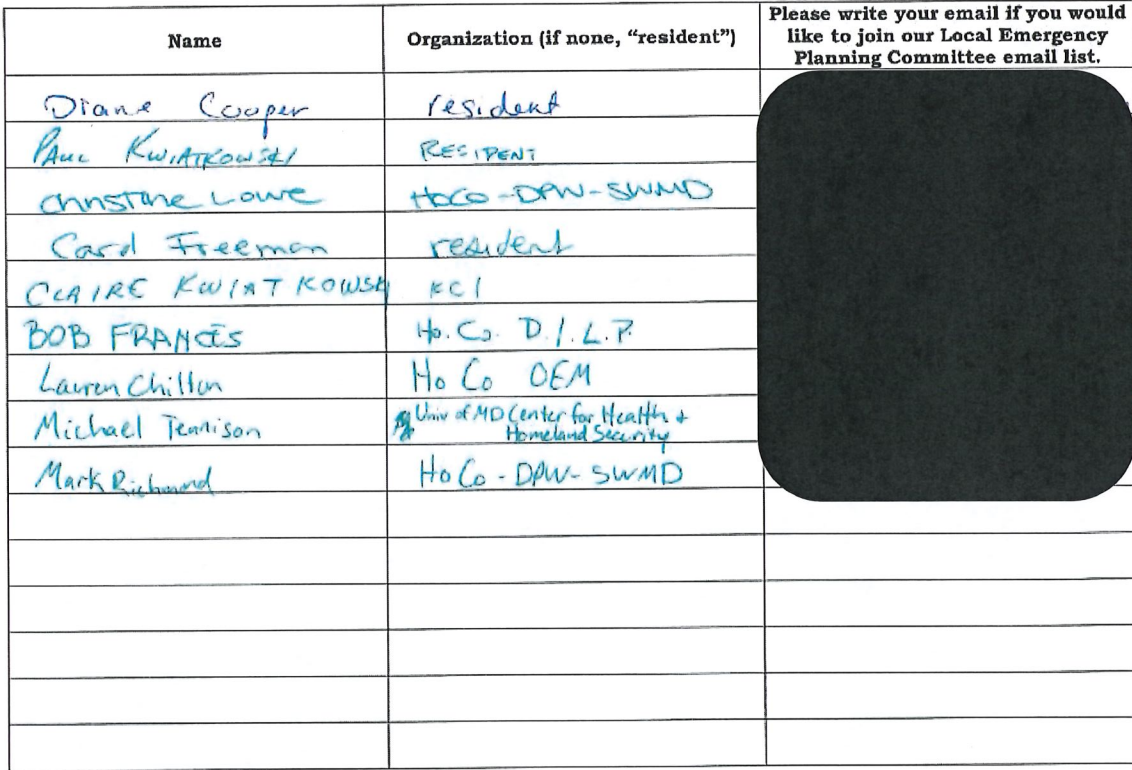 Name
Organization (if none, "resident")
Please write your email if you would
like to join our Local Emergency
Planning Committee email list.
Diane Cooper resident
PAUL KWIATKOWSKI RESIDENT
Christine Lowe HoCo-DPW-SWMD
Carol Freeman resident
CLAIRE KWIATKOWSKI KCI
BOB FRANCES Ho. Co. D.I.L.P.
Lauren Chillon Ho Co OEM
Michael Tennison Univ of MD Center for Health +
Homeland Security
Mark Richmond HoCo - DPW - SWMD